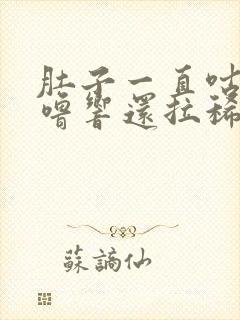 肚子一直咕
嚕響還拉稀
蘇謫仙